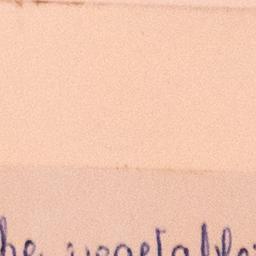 he vegetable